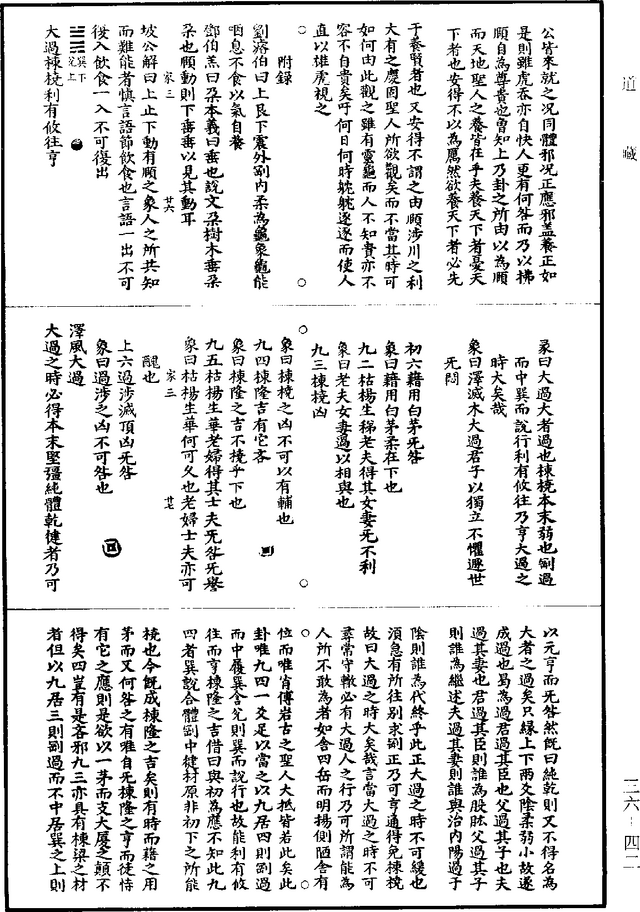 道藏
公皆來就之况同體邪况正應邪蓋養正如
是則雖虎吞亦自快人更有何咎而乃以拂
頤自為尊貴也曾知上乃卦之所由以為頤
而天地聖人之養皆在乎夫養天下者憂天
下者也安得不以為厲然欲養天下者必先
于養賢者也又安得不謂之由頤涉川之利
大有之應固聖人所欲觀矣而不當其時可
如何由此觀之雖有靈龜而人不知貴亦不
容不自貴矣吁何日何時眈眈逐逐而使人
直以雄虎視之
附録
劉濬伯曰上艮下震外剛内柔為龜象龜能
咽息不食以氣自養
鄧伯羔曰朶本義曰垂也說文朶樹木垂朶
朶也頤動則下垂垂以見其動耳
家三
廿六
坡公解曰上止下動有頤之象人之所共知
而難能者慎言語節飲食也言語一出不可
復入飲食一入不可復出
巽下
兌上
大過棟橈利有攸往亨
彖曰大過大者過也棟橈本末弱也剛過
而中巽而說行利有攸往乃亨大過之
時大矣哉
象曰澤滅木大過君子以獨立不懼遯世
无悶
初六藉用白茅无咎
象曰藉用白茅柔在下也
九二枯楊生稊老夫得其女妻无不利
象曰老夫女妻過以相與也
九三棟橈凶
象曰棟橈之凶不可以有輔也
九四棟隆吉有它吝
象曰棟隆之吉不橈乎下也
九五枯楊生華老婦得其士夫无咎无譽
象曰枯楊生華何可久也老婦士夫亦可
家三
廿七
醜也
上六過涉滅頂凶无咎
象曰過涉之凶不可咎也
澤風大過
大過之時必得本末堅彊純體乾健者乃可
以元亨而无咎然既曰純乾則又不得名為
大者之過矣只緣上下兩爻陰柔弱小故遂
成過也易為過君過其臣也父過其子也夫
過其妻也君過其臣則誰為股肱父過其子
則誰為繼述夫過其妻則誰與治内陽過于
陰則誰為代終乎此正大過之時不可緩也
須急有所往别求剛正乃可亨通得免棟橈
故曰大過之時大矣哉言當大過之時不可
尋常守轍必有大過人之行乃可所謂能為
人所不敢為者如舍四岳而明揚側陋舍有
位而唯肖傅岩古之聖人大抵皆若此矣此
卦唯九四一爻足以當之以九居四則剛過
而中履巽含兌則巽而說行也故能利有攸
往而亨棟隆之吉借曰與初為應不知此九
四者巽說合體剛中健材原非初下之所能
橈也今既成棟隆之吉矣則有時而藉之用
茅而又何咎之有唯自无棟隆之亨而徒恃
有它之應則是欲以一茅而支大厦之顛不
得矣四豈有是吝邪九三亦具有棟梁之材
者但以九居三則剛過而不中居巽之上則
三六-四二